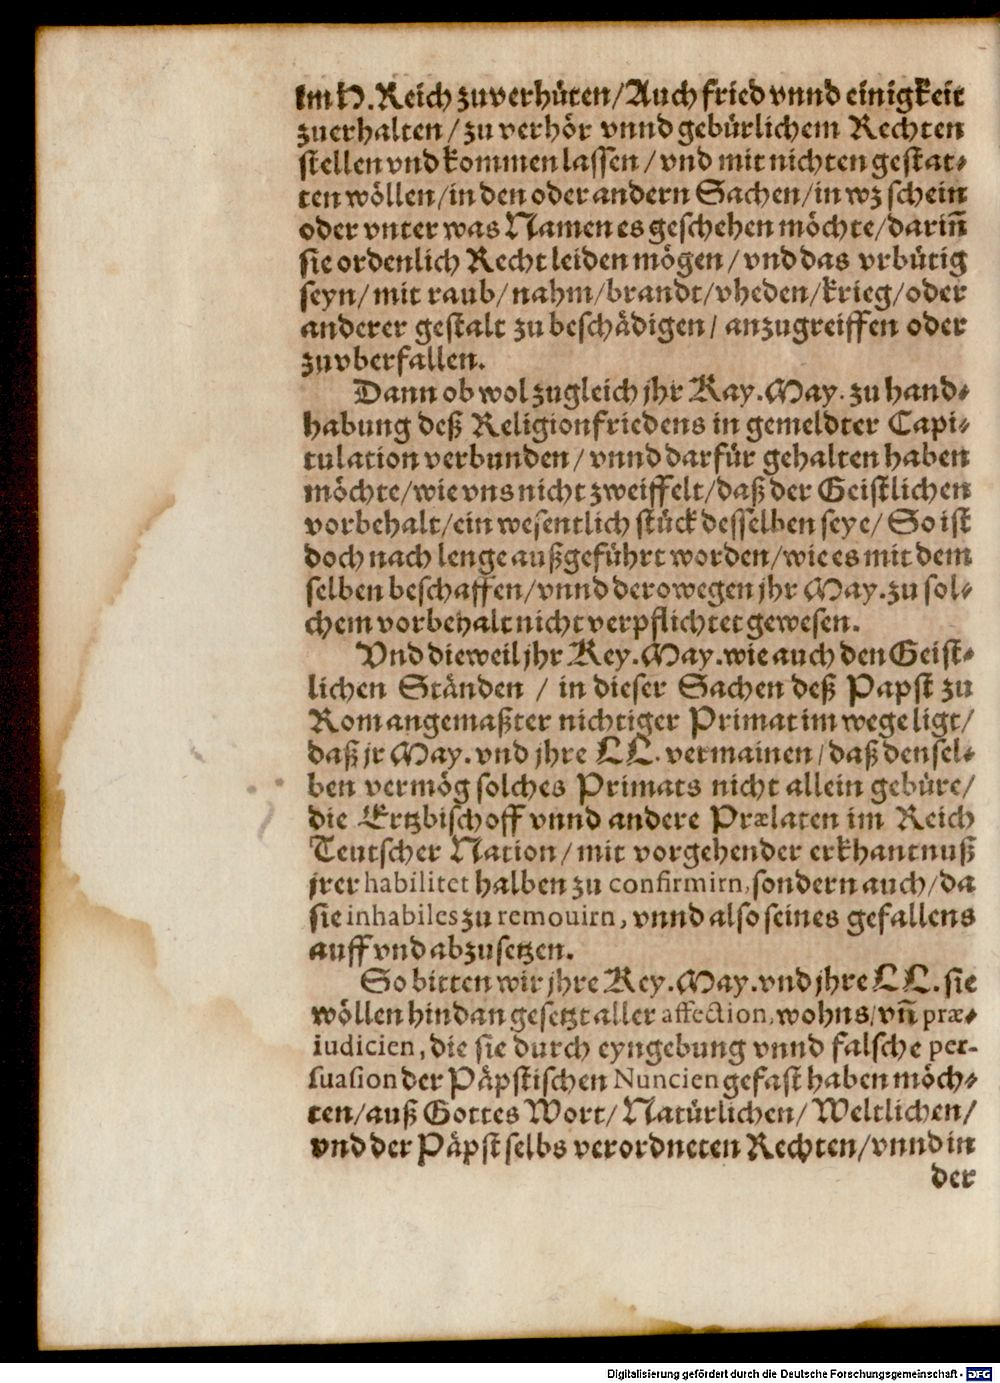 im H. Reich zuverhüten/Auch fried vnnd einigkeit
zuerhalten/zu verhör vnnd gebürlichem Rechten
stellen vnd kommen lassen/vnd mit nichten gestat-
ten wöllen/in den oder andern Sachen/in wz schein
oder vnter was Namen es geschehen möchte/dariñ
sie ordenlich Recht leiden mögen/vnd das vrbütig
seyn/mit raub/nahm/brandt/vheden/krieg/oder
anderer gestalt zu beschädigen/anzugreiffen oder
zuvberfallen.
Dann ob wol zugleich jhr Kay. May. zu hand-
habung deß Religionfriedens in gemeldter Capi-
tulation verbunden/vnnd darfür gehalten haben
möchte/wie vns nicht zweiffelt/daß der Geistlichen
vorbehalt/ein wesentlich stück desselben seye/So ist
doch nach lenge außgeführt worden/wie es mit dem
selben beschaffen/vnnd derowegen jhr May. zu sol-
chem vorbehalt nicht verpflichtet gewesen.
Vnd dieweil jhr Key. May. wie auch den Geist-
lichen Ständen / in dieser Sachen deß Papst zu
Rom angemaßter nichtiger Primat im wege ligt/
daß jr May. vnd jhre LL. vermainen/daß densel-
ben vermög solches Primats nicht allein gebüre/
die Ertzbischoff vnnd andere Prælaten im Reich
Teutscher Nation/mit vorgehender erkhantnuß
jrer habilitet halben zu confirmirn, sondern auch/da
sie inhabiles zu remouirn, vnnd also seines gefallens
auff vnd abzusetzen.
So bitten wir jhre Key. May. vnd jhre LL. sie
wöllen hindan gesetzt aller affection, wohns/vñ præ-
iudicien, die sie durch eyngebung vnnd falsche per-
suasion der Päpstischen Nuncien gefast haben möch-
ten/auß Gottes Wort/Natürlichen/Weltlichen/
vnd der Päpst selbs verordneten Rechten/vnnd in
der
Digitalisierung gefördert durch die Deutsche Forschungsgemeinschaft - DFG